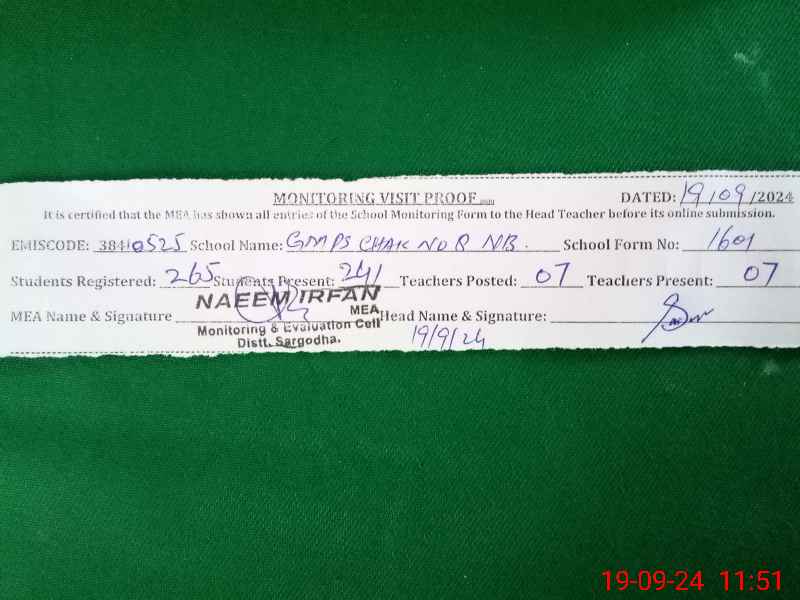 MONITORING VISIT PROOF DATED: 19/09/2024
It is certified that the MEA has shown all entries of the School Monitoring Form to the Head Teacher before its online submission.
EMISCODE: 38410525 School Name: GMPS CHAK NO 8 NB. School Form No: 1601
Students Registered: 265 Students Present: 241 Teachers Posted: 07 Teachers Present: 07
NAEEM IRFAN
MEA Name & Signature MEA Head Name & Signature:
Monitoring & Evaluation Cell 19/9/24
Distt. Sargodha.
19-09-24 11:51